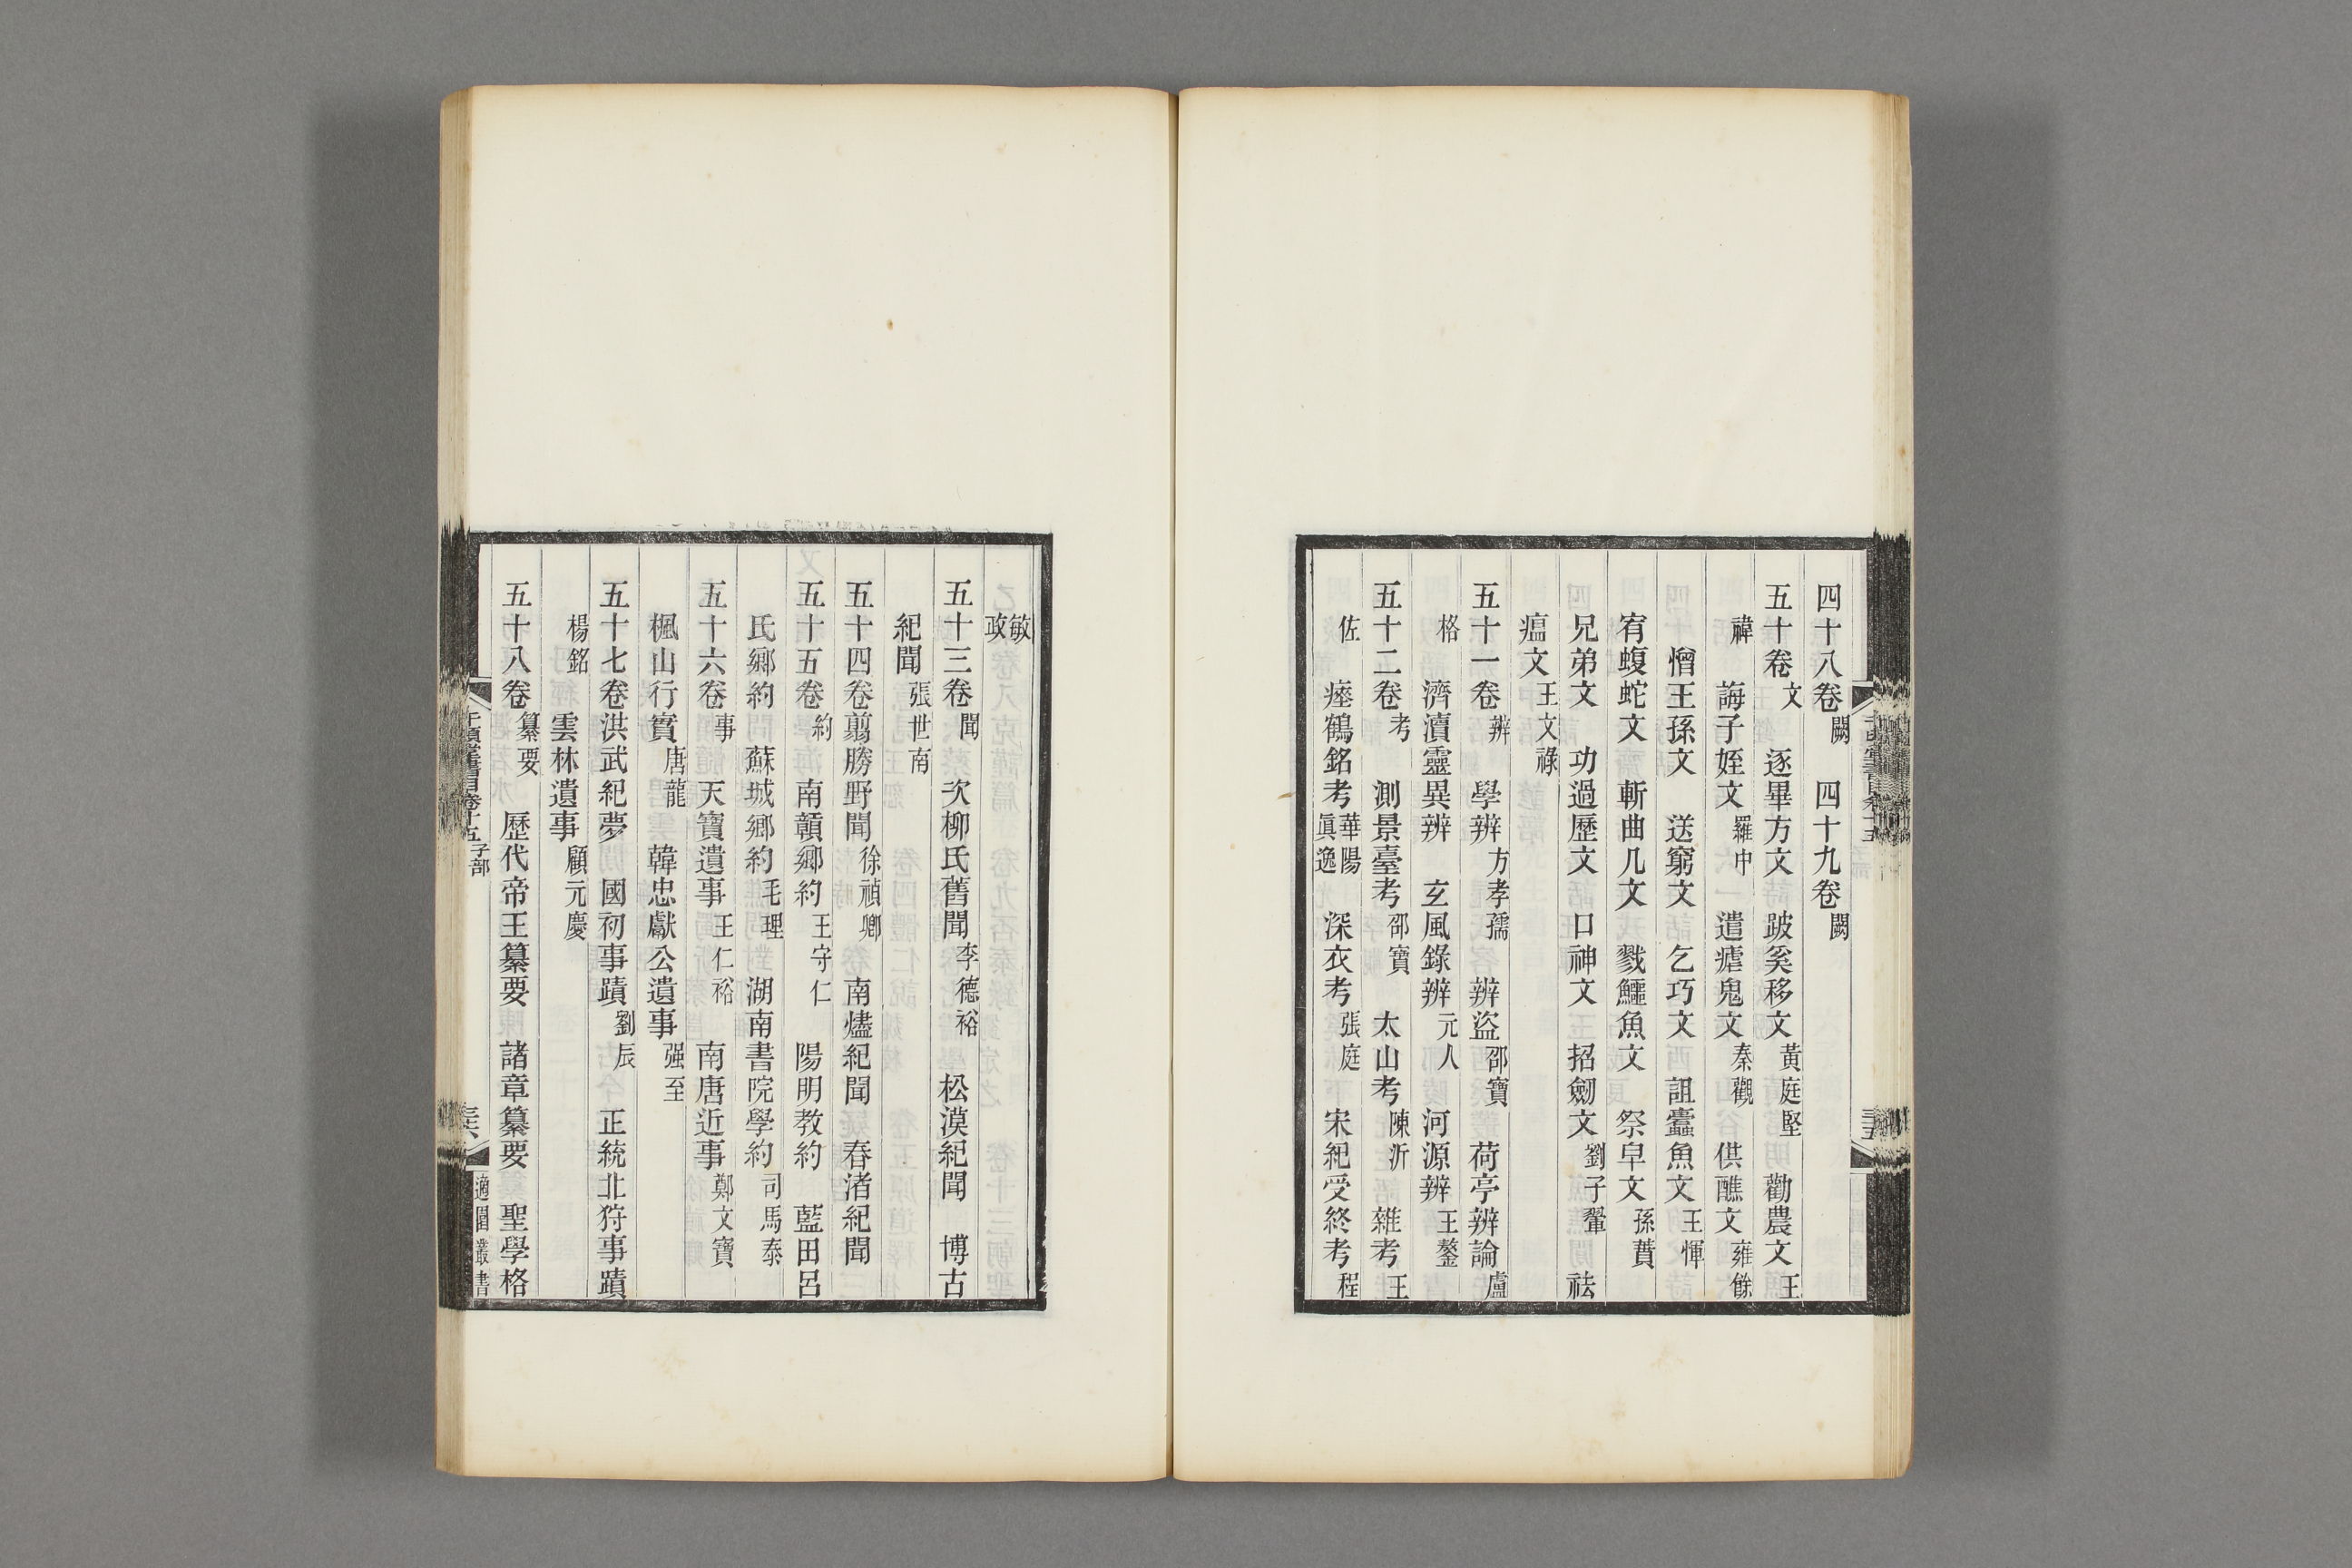 四十八卷闕　四十九卷闕
五十卷文　逐畢方文　跛奚移文黃庭堅　勸農文王
褘　誨子姪文羅中　遣瘧鬼文秦觀　供醮文雍餘
憎王孫文　送窮文　乞巧文　詛蠹魚文王惲
宥蝮蛇文　斬曲几文　戮鱷魚文　祭皁文孫蕡
兄弟文　功過歷文　口神文　招劒文劉子翬　祛
瘟文王文祿
五十一卷辨　學辨方孝孺　辨盜邵寶　荷亭辨論盧
格　濟瀆靈異辨　玄風錄辨元人　河源辨王鏊
五十二卷考　測景臺考邵寶　太山考陳沂　雜考王
佐　瘞鶴銘考華陽眞逸　深衣考張庭　宋紀受終考程
敏政
五十三卷聞　次柳氏舊聞李德裕　松漠紀聞　博古
紀聞張世南
五十四卷翦勝野聞徐禎卿　南燼紀聞　春渚紀聞
五十五卷約　南贛鄉約王守仁　陽明教約　藍田呂
氏鄉約　蘇城鄉約毛理　湖南書院學約司馬泰
五十六卷事　天寶遺事王仁裕　南唐近事鄭文寶
楓山行實唐龍　韓忠獻公遺事强至
五十七卷洪武紀夢　國初事蹟劉辰　正統北狩事蹟
楊銘　雲林遺事顧元慶
五十八卷纂要　歷代帝王纂要　諸章纂要　聖學格
千頃堂書目卷十五子部　三十六　適園叢書